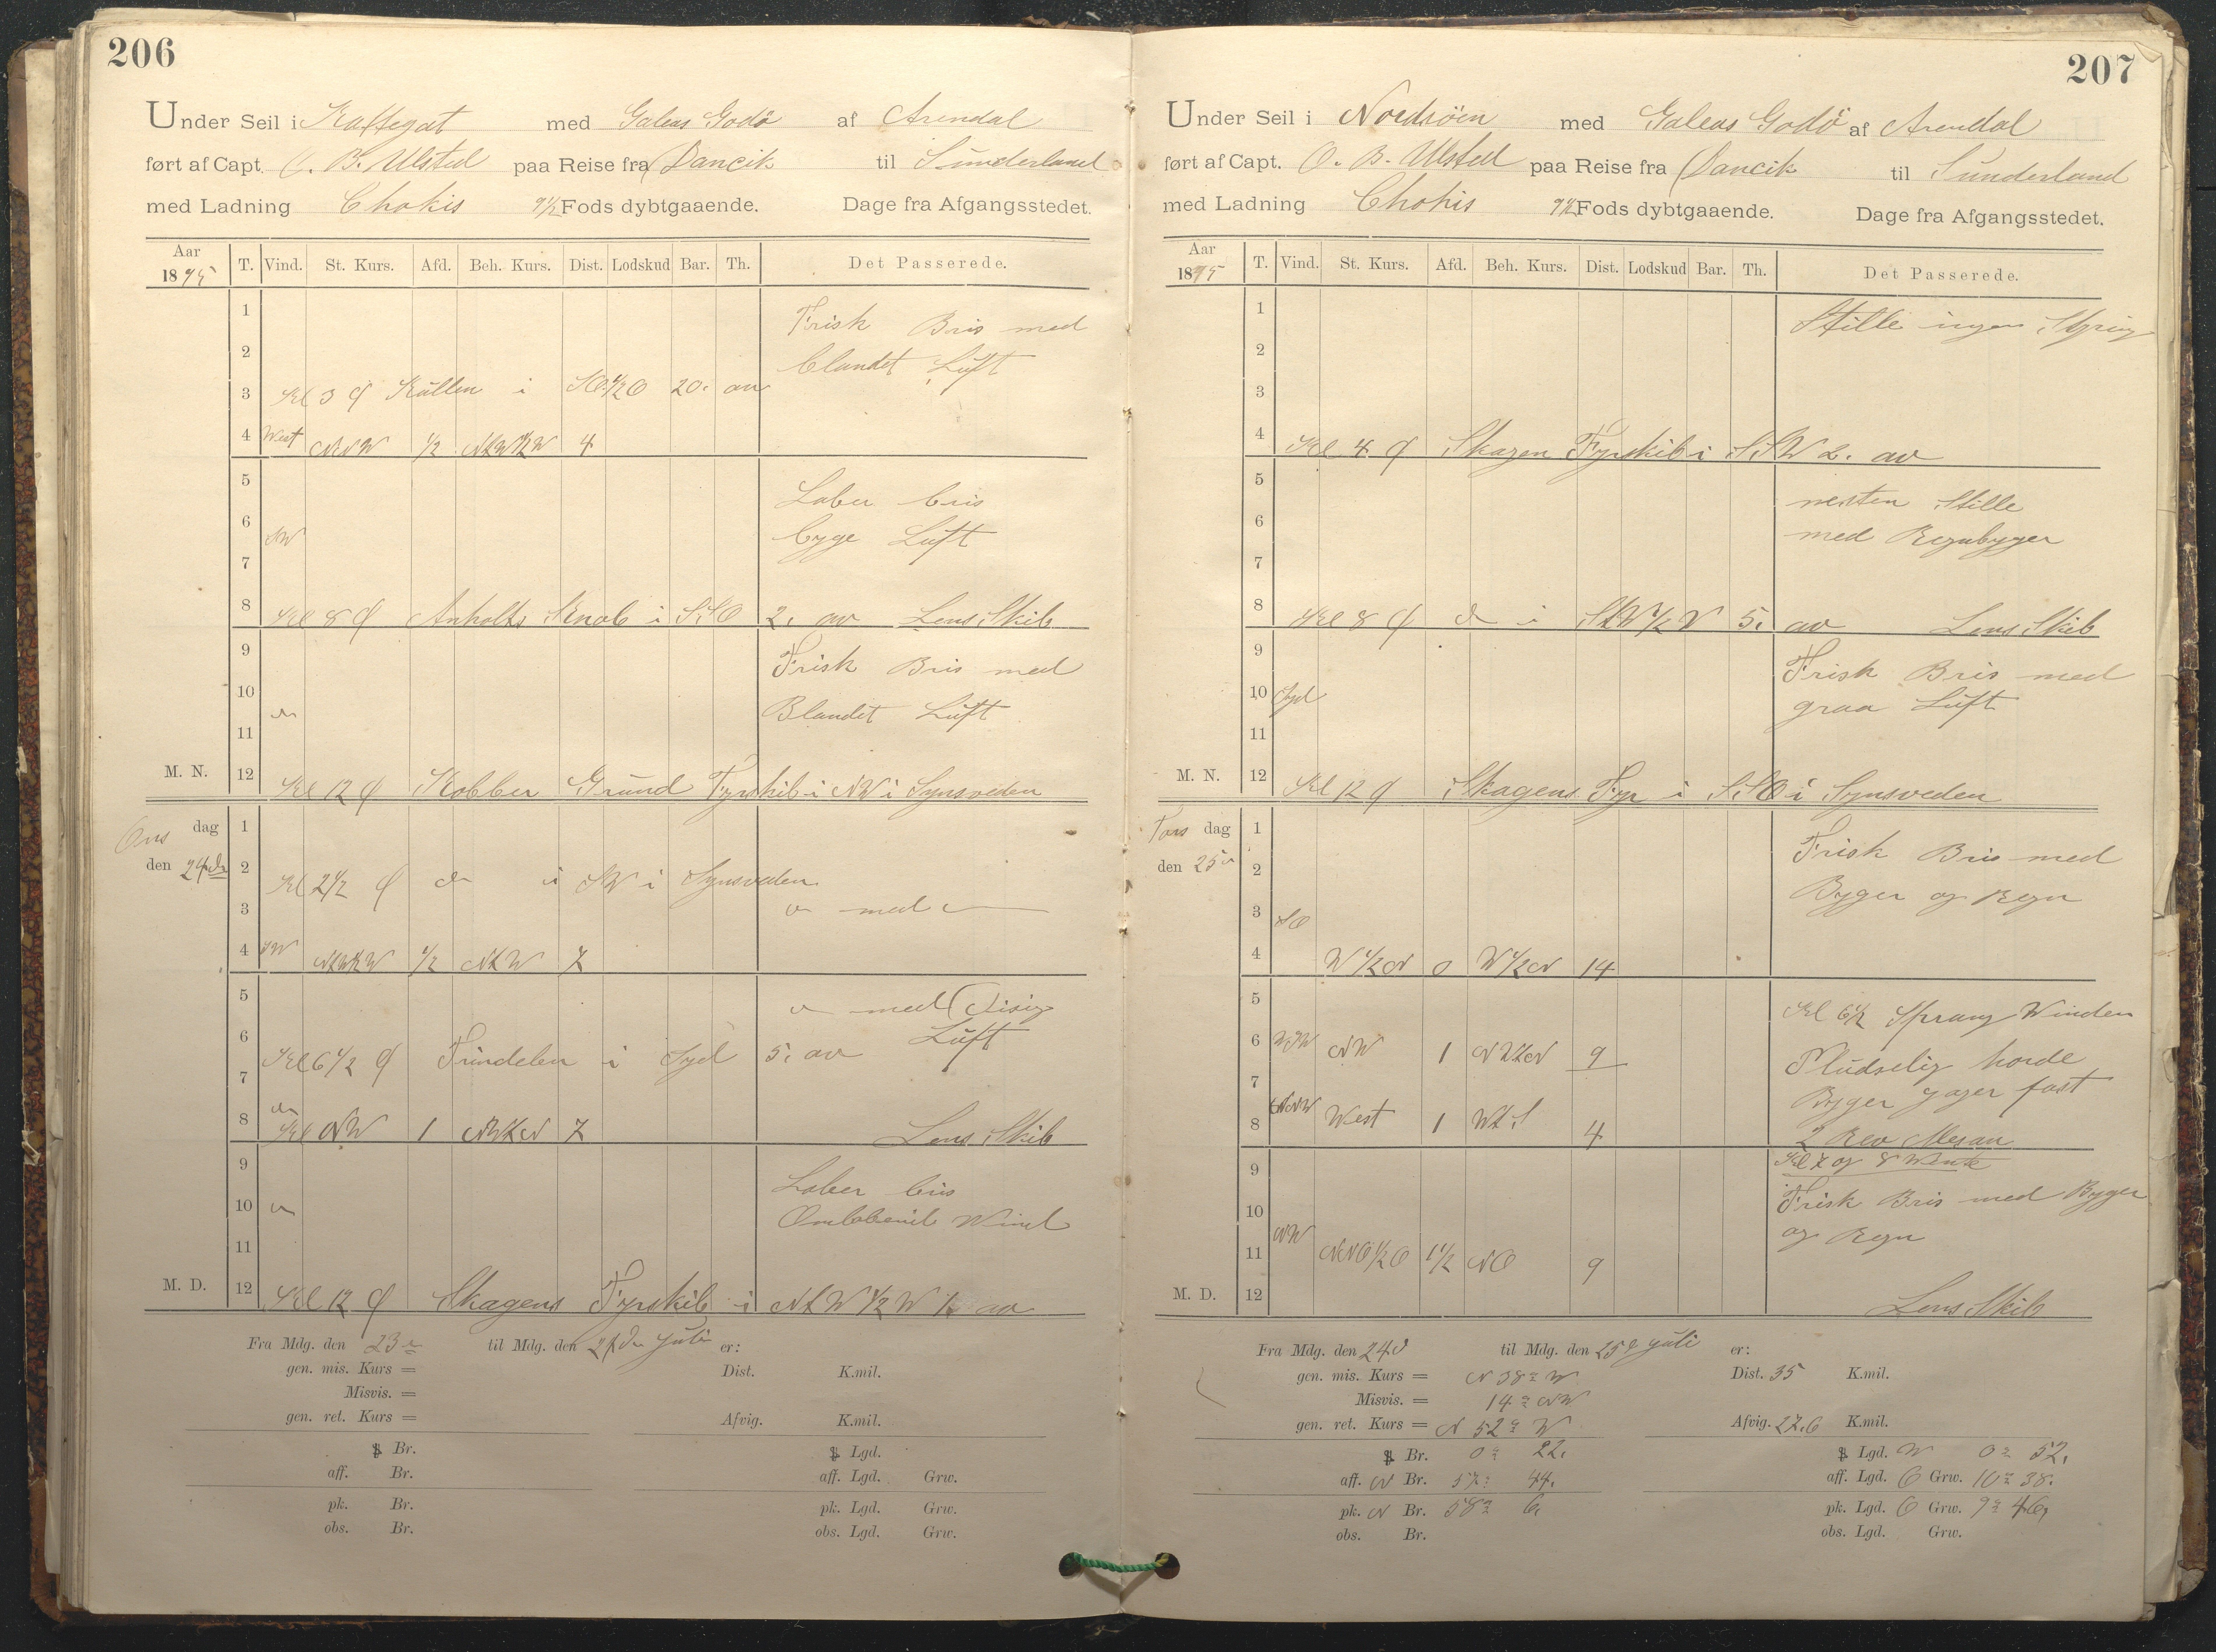 206
Under Seil i Kattegat med Galeas Godø af Arendal
ført af Capt. O. B. Ulsted paa Reise fra Dancik til Sunderland
med Ladning Chokis 9½ Fods dybtgaaende. Dage fra Afgangsstedet.
Aar 1895 T. Vind. St. Kurs. Afd. Beh. Kurs. Dist. Lodskud Bar. Th. Det Passerede.
1 Frisk Bris med
2 blandet Luft
3 Kl 3 Kullen i SO½O 20. av
4 West NNW ½ 4
5 Laber bris
6 SW byge Luft
7
8 Kl 8 Anholts Knob i SSO 2. av Lens Skib
9 Frisk Bris med
10 do Blandet Luft
11
M. N. 12 Kl 12 Kobber Grund Fyrskib i NW i Synsveden
Ons dag 1
den 24de 2 Kl 2½ do i SW i Synsveden
3 do med do
4 SW ½ NtW 7
5 do med Disig
6 Luft
7 Kl 6½ Trindelen i Syd 5. av
8 do NW 1 NWtN 7 Lens Skib
9 Laber bris
10 do Omløbende Wind
11
M. D. 12 Kl 12 Skagens Fyrskib i NtW½W 1. av
Fra Mdg. den 23de til Mdg. den 24de Juli er:
gen. mis. Kurs = Dist. K.mil.
Misvis. =
gen. ret. Kurs = Afvig. K.mil.
Br. Lgd.
aff. Br. aff. Lgd. Grw.
pk. Br. pk. Lgd. Grw.
obs. Br. obs. Lgd. Grw.
207
Under Seil i Nordsöen med Galeas Godø af Arendal
ført af Capt. O. B. Ulsted paa Reise fra Dancik til Sunderland
med Ladning Chokis 9½ Fods dybtgaaende. Dage fra Afgangsstedet.
Aar 1895 T. Vind. St. Kurs. Afd. Beh. Kurs. Dist. Lodskud Bar. Th. Det Passerede.
1 Stille ingen Styring
2
3
4 Kl 4 Skagen Fyrskib i SSW 2. av
5 nesten Stille
6 med Regnbyger
7
8 Kl 8 do i StW½W 5. av Lens Skib
9 Frisk Bris med
10 Syd graa Luft
11
M. N. 12 Kl 12 Skagens Fyr i SSO i Synsveden
Tors dag 1 Frisk Bris med
den 25de 2 Byger og Regn
3 SO
4 W½N 0 W½N 14
5 Kl 6½ Sprang Winden
6 WSW NW 1 NWtN 9 Pludselig horde
7 Byger fast
8 West 1 WtS 4 2 Rev Mesan
9 Kl 7 og 8 Wente
10 Frisk Bris med Byger
11 NW NNO½O 1½ NO 9 og Regn
M. D. 12 Lens Skib
Fra Mdg. den 24d til Mdg. den 25d Juli er:
gen. mis. Kurs = N 38° W Dist. 35 K.mil.
Misvis. = 14° NW
gen. ret. Kurs = N 52° W Afvig. 27,6 K.mil.
Br. 0° 22. Lgd. W 0° 52.
aff. N Br. 57° 44. aff. Lgd. O Grw. 10° 38.
pk. N Br. 58° 6, pk. Lgd. O Grw. 9° 46,
obs. Br. obs. Lgd. Grw.